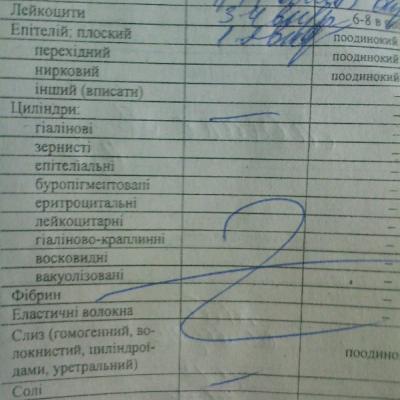 Лейкоцити 3-4 6-8 в
Епітелій; плоский 1-2 поодинокий
перехідний поодинокий
нирковий поодинокий
інший (вписати)
Циліндри: —
гіалінові –
зернисті –
епітеліальні –
буропігментовані –
еритроцитальні –
лейкоцитарні –
гіаліново-краплинні –
восковидні –
вакуолізовані –
Фібрин –
Еластичні волокна –
Слиз (гомогенний, во-
локнистий, циліндрої-
дами, уретральний) поодино
Солі —